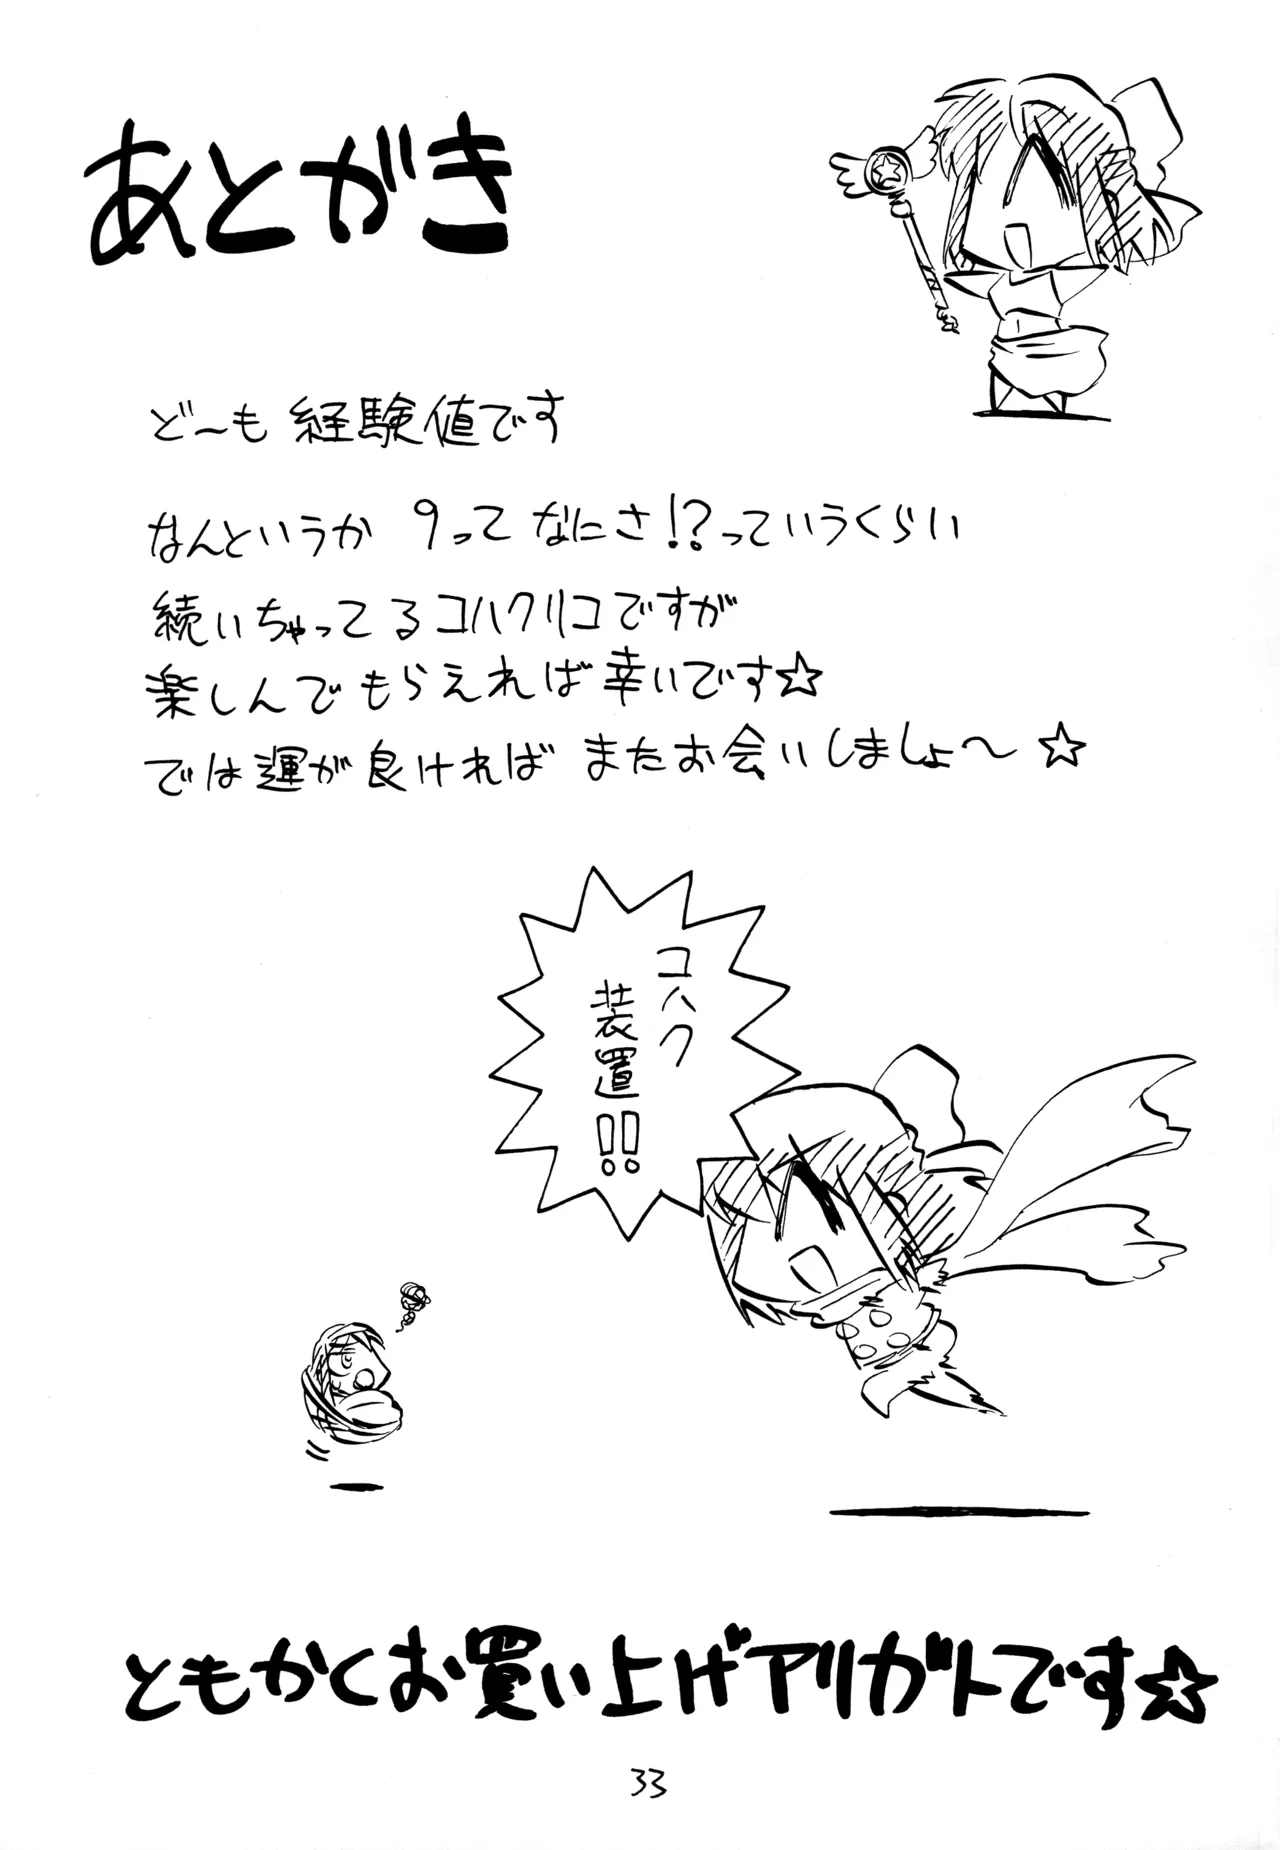 あとがき
ど〜も 経験値です
なんというか 9って なにさ!?っていうくらい
続いちゃってるコハクリコですが
楽しんでもらえれば幸いです☆
では運が良ければ またお会いしましょ〜☆
コハク
装置!!
ともかくお買い上げアリガトです☆
33